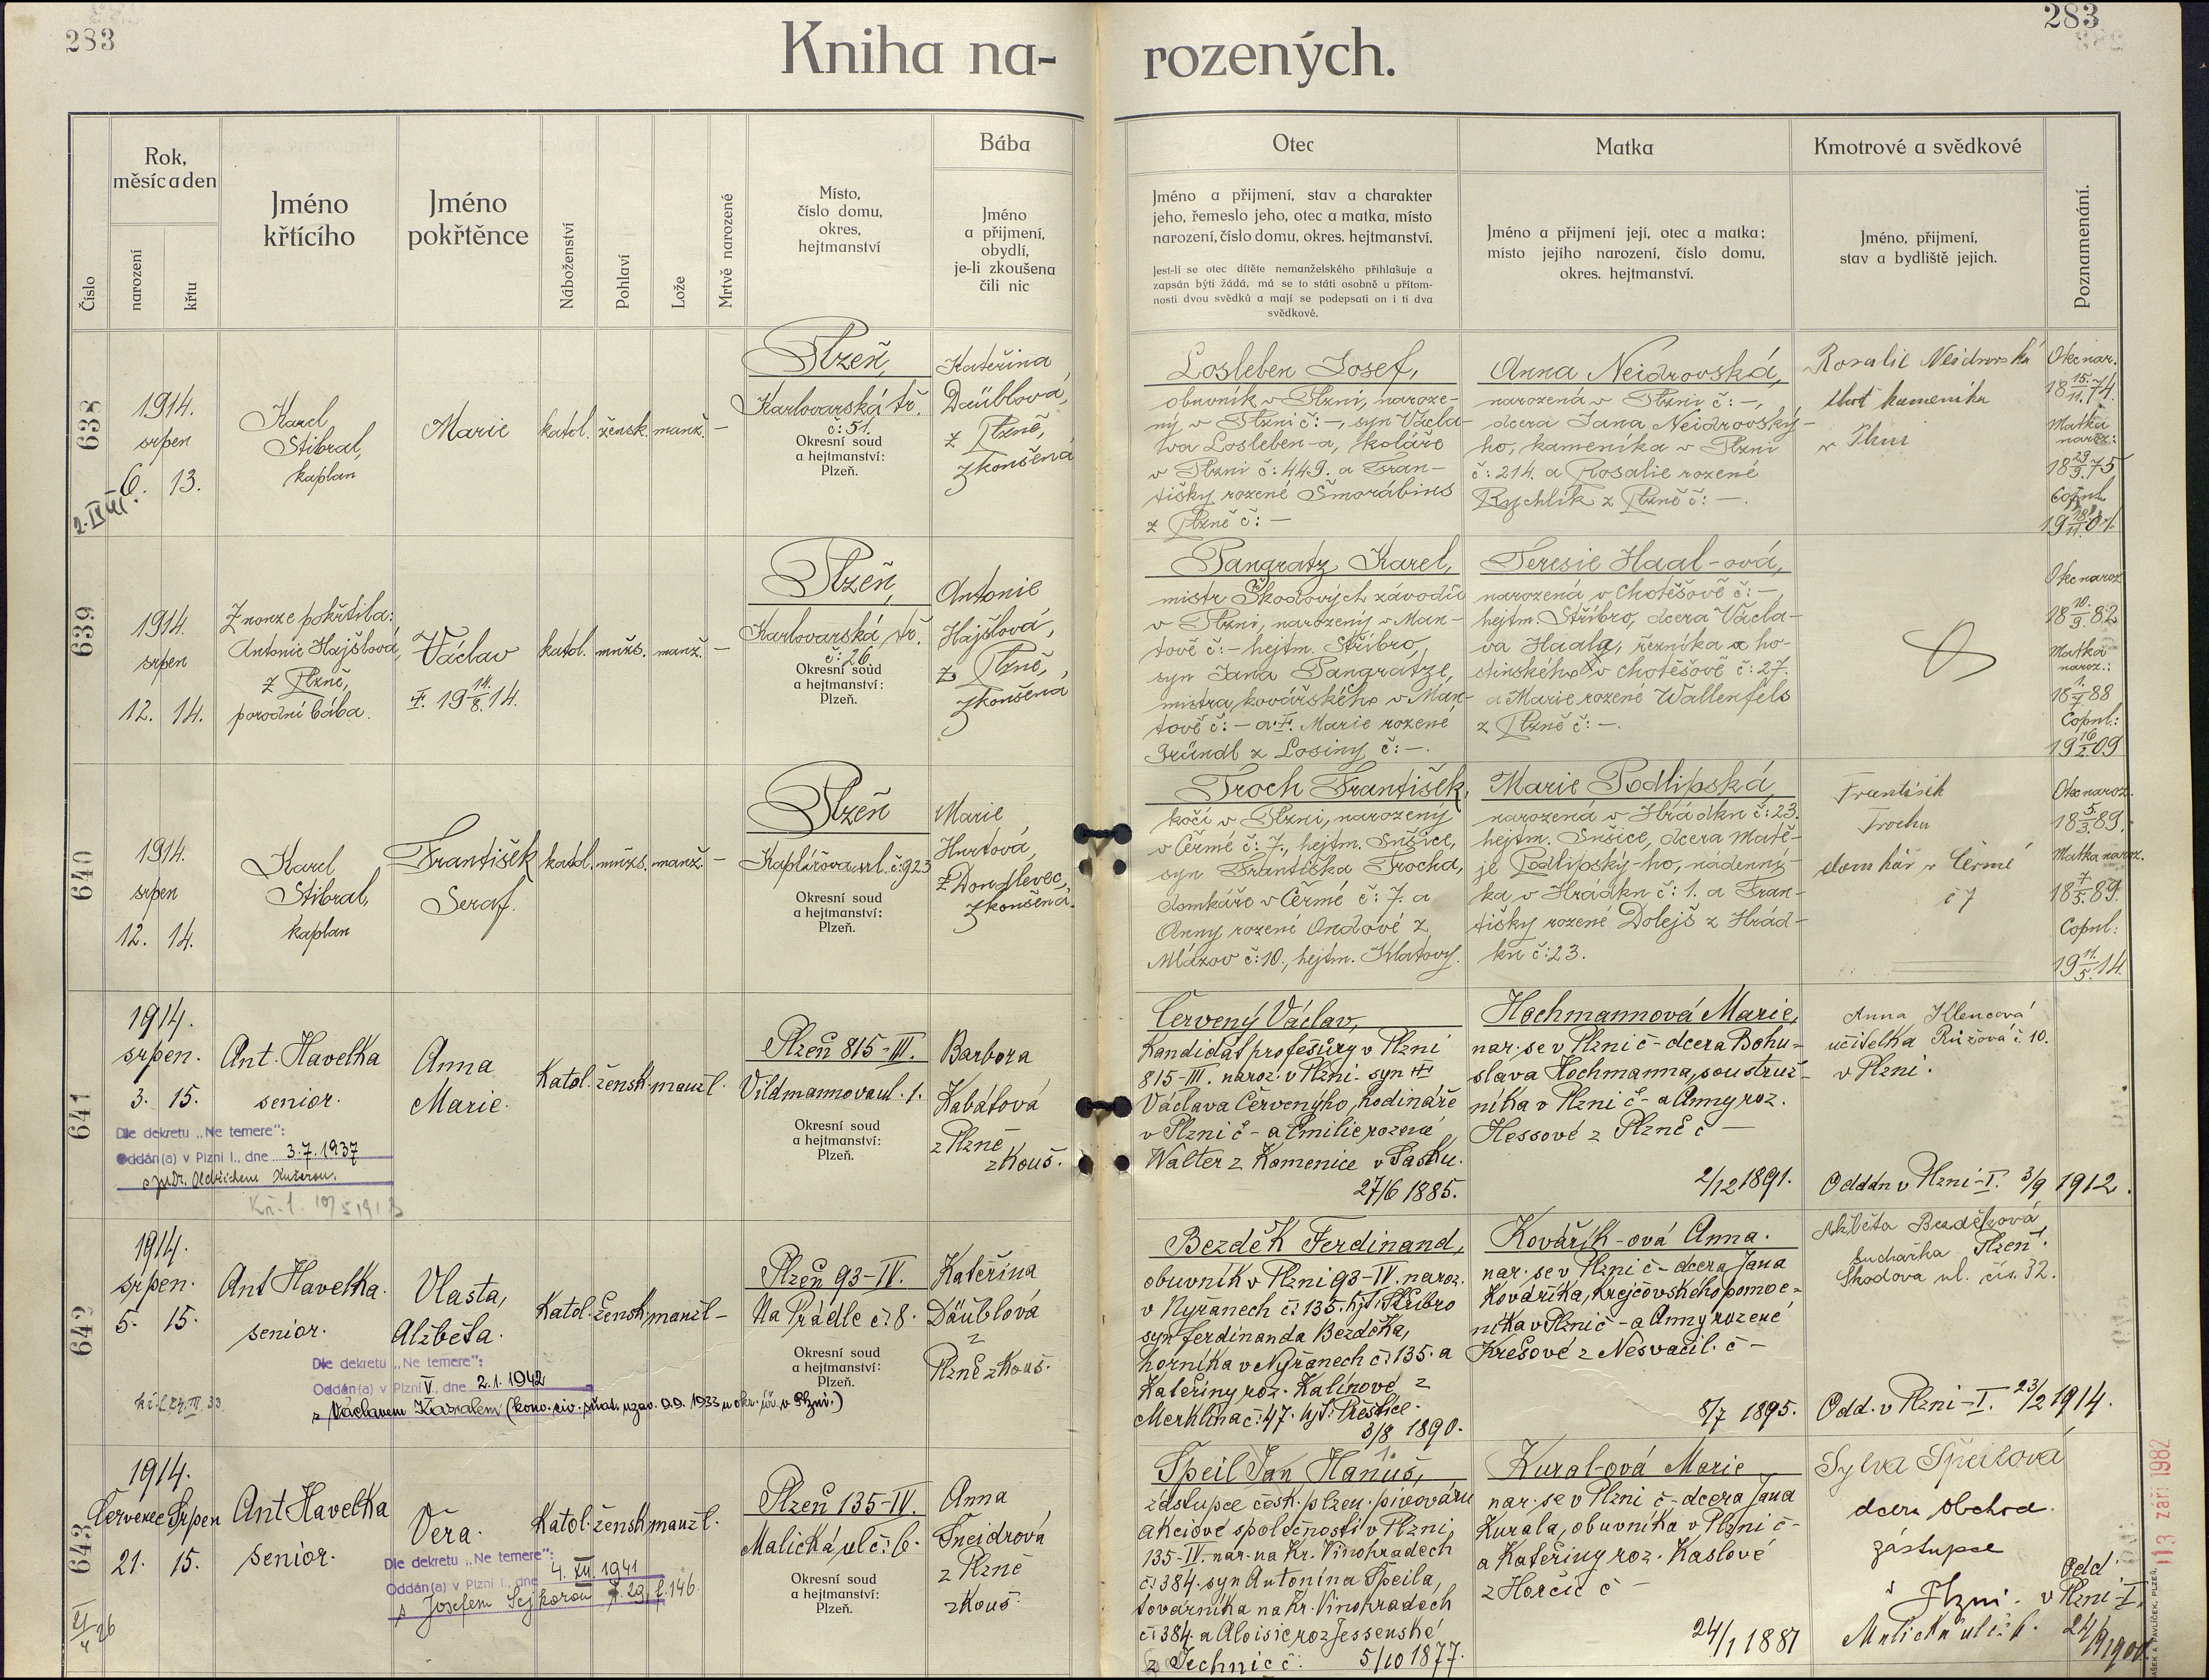 283
283
Kniha na-
rozených.
Číslo
Rok,
měsíc a den
narození
křtu
Jméno
křtícího
Jméno
pokřtěnce
Náboženství
Pohlaví
Lože
Mrtvě narozené
Místo,
číslo domu,
okres,
hejtmanství
Bába
Jméno
a přijmení,
obydlí,
je-li zkoušena
čili nic
Otec
Jméno a přijmení, stav a charakter
jeho, řemeslo jeho, otec a matka, místo
narození, číslo domu, okres. hejtmanství.
Jest-li se otec dítěte nemanželského přihlašuje a
zapsán býti žádá, má se to státi osobně u přítom-
nosti dvou svědků a mají se podepsati on i ti dva
svědkové.
Matka
Jméno a přijmení její, otec a matka;
místo jejího narození, číslo domu,
okres. hejtmanství.
Kmotrové a svědkové
Jméno, přijmení,
stav a bydliště jejich.
Poznamenání.
638
1914.
srpen
6. 13.
Karel
Stibral,
kaplan
Marie
katol. žensk. manž. –
Plzeň,
Karlovarská tř.
č: 51.
Okresní soud
a hejtmanství:
Plzeň.
Kateřina
Däublová,
z Plzně,
zkoušená
Losleben Josef,
obuvník v Plzni, naroze-
ný v Plzni č: –, syn Václa-
va Losleben-a, školáře
v Plzni č: 449. a Fran-
tišky rozené Šmorábins
z Plzně č: –
Anna Neidrovská,
narozená v Plzni č: –,
dcera Jana Neidrovský-
ho, kameníka v Plzni
č: 214. a Rosalie rozené
Rychlík z Plzně č: –.
Rosalie Neidrovská
choť kameníka
v Plzni
Otec nar.
18 15./11. 74.
Matka
naroz:
18 29/9. 75
Copul.
639
1914.
srpen
12. 14.
Z nouze pokřtila:
Antonie Hajšlová,
z Plzně,
porodní bába.
Václav
19 14./8. 14.
katol. mužs. manž. –
Plzeň,
Karlovarská tř.
č: 26.
Okresní soud
a hejtmanství:
Plzeň.
Antonie
Hajšlová,
z Plzně,
zkoušená
Pangratz Karel,
mistr Škodových závodů
v Plzni, narozený v Man-
tově č: – hejtm. Stříbro,
syn Jana Pangratze,
mistra kovářského v Man-
tově č: – a Marie rozené
Gründl z Losiny č: –.
Teresie Haal-ová,
narozená v Chotěšově č: –,
hejtm. Stříbro, dcera Václa-
va Haala, řezníka a ho-
stinského v Chotěšově č: 27.
a Marie rozené Wallenfels
z Plzně č: –.
Otec naroz.
18 10./9. 82
Matka
naroz.:
18 1./7 88
Copul.:
19 16/2. 09
640
1914.
srpen
12. 14.
Karel
Stibral,
kaplan
František
Seraf.
katol. mužs. manž. –
Plzeň
Kaplířova ul. č: 923
Okresní soud
a hejtmanství:
Plzeň.
Marie
Hurtová,
z Doudlevec,
zkoušená.
Troch František,
kočí v Plzni, narozený
v Čermé č: 7., hejtm. Sušice,
syn Františka Trocha,
domkáře v Čermé č: 7. a
Anny rozené Ondové z
Mlázov č: 10., hejtm. Klatovy.
Marie Podlipská,
narozená v Hrádku č: 23.
hejtm. Sušice, dcera Matě-
je Podlipský-ho, nádenní-
ka v Hrádku č: 1. a Fran-
tišky rozené Dolejš z Hrád-
ku č: 23.
František
Trocha
domkář v Čermé
č 7
Otec naroz.
18 5/3. 89.
Matka naroz.
18 7/5. 89.
Copul:
19 11./5. 14.
641
1914.
srpen.
3. 15.
Ant. Havelka
senior.
Anna
Marie.
Katol. žensk. manžl.
Plzeň 815-III.
Vildmannova ul. 1.
Okresní soud
a hejtmanství:
Plzeň.
Barbora
Kabátová
z Plzně
zkouš.
Dle dekretu „Ne temere":
Oddán(a) v Plzni I., dne 3.7.1937
s JuDr. Oldřichem Kučerou.
Červený Václav,
Kandidát profesury v Plzni
815-III. naroz. v Plzni – syn
Václava Červenýho, hodináře
v Plzni č – a Emilie rozené
Walter z Kamenice v Sasku.
27/6 1885.
Hochmannová Marie,
nar. se v Plzni č – dcera Bohu-
slava Hochmanna, soustruž-
níka v Plzni č – a Anny roz.
Hessové z Plzně č –
2/12 1891.
Anna Klencová
učitelka Růžová č 10.
v Plzni.
Oddán v Plzni-I. 3/9 1912.
642
1914.
srpen.
5. 15.
Ant Havelka.
senior.
Vlasta,
Alžběta.
Katol. žensk. manžl –
Plzeň 93-IV.
Na Prádle č: 8.
Okresní soud
a hejtmanství:
Plzeň.
Kateřina
Däublová
z
Plzně zkouš.
Dle dekretu „Ne temere":
Oddán(a) v Plzni V, dne 2.1.1942
s Václavem Kazralem (konv. civ. sňat. uzav. 0.0. 1933 u okr. úř. v Plzni.)
Bezděk Ferdinand,
obuvník v Plzni 93-IV. naroz.
v Nýřanech č: 135. hjt: Stříbro
syn Ferdinanda Bezděka,
horníka v Nýřanech č: 135. a
Kateřiny roz. Kalinové z
Merklína č: 47. hjt: Přeštice.
3/8 1890.
Kovářík-ová Anna.
nar. se v Plzni č – dcera Jana
Kováříka, krejčovského pomoc-
níka v Plzni č – a Anny rozené
Krešové z Nesvačil. č –
8/7 1895.
Alžběta Bezděková,
kuchařka Plzeň.
Škodova ul. čís. 32.
Odd. v Plzni-I. 23/2 1914.
643
1914.
Červenec Srpen
21. 15.
Ant Havelka
senior.
Věra.
Katol. žensk. manžl.
Plzeň 135-IV.
Malická ul č: 6.
Okresní soud
a hejtmanství:
Plzeň.
Anna
Šneidrová
z Plzně
zkouš.
Dle dekretu „Ne temere":
Oddán(a) v Plzni I., dne 4. XII. 1941
s Josefem Sejkorou f. 146.
Špeil Jan Hanuš,
zástupce česk. plzen. pivovaru
akciové společnosti v Plzni,
135-IV. nar. na Kr. Vinohradech
č: 384. syn Antonína Špeila,
továrníka na Kr. Vinohradech
č: 384. a Aloisie roz Jessenské
z Jechnic č: 5/10 1877.
Kural-ová Marie
nar. se v Plzni č – dcera Jana
Kurala, obuvníka v Plzni č –
a Kateřiny roz. Kaslové
z Horčic č –
24/1 1881
Sylva Špeilová
dcera obchod.
zástupce
v Plzni.
Malická ul č: 6.
Odd
v Plzni-I.
113 září 1982